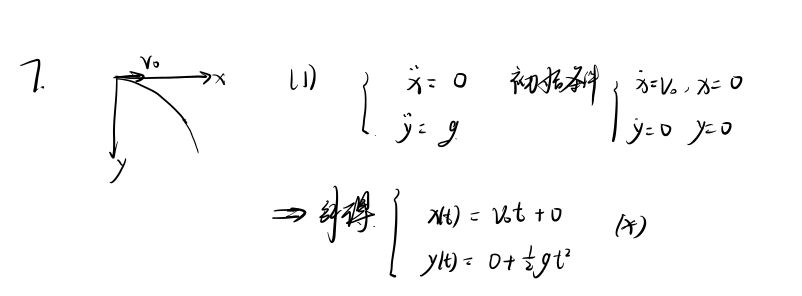 7.
v₀
x
y
(1) { ẍ = 0 初始条件 { ẋ=v₀, x=0
ÿ = g ẏ=0 y=0
⇒ 解得 { x(t) = v₀t + 0 (*)
y(t) = 0 + ½gt²